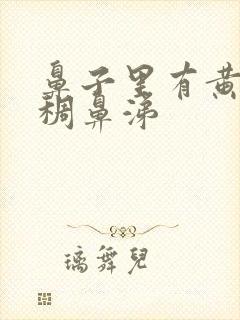 鼻子里有黄
稠鼻涕
璃舞兒